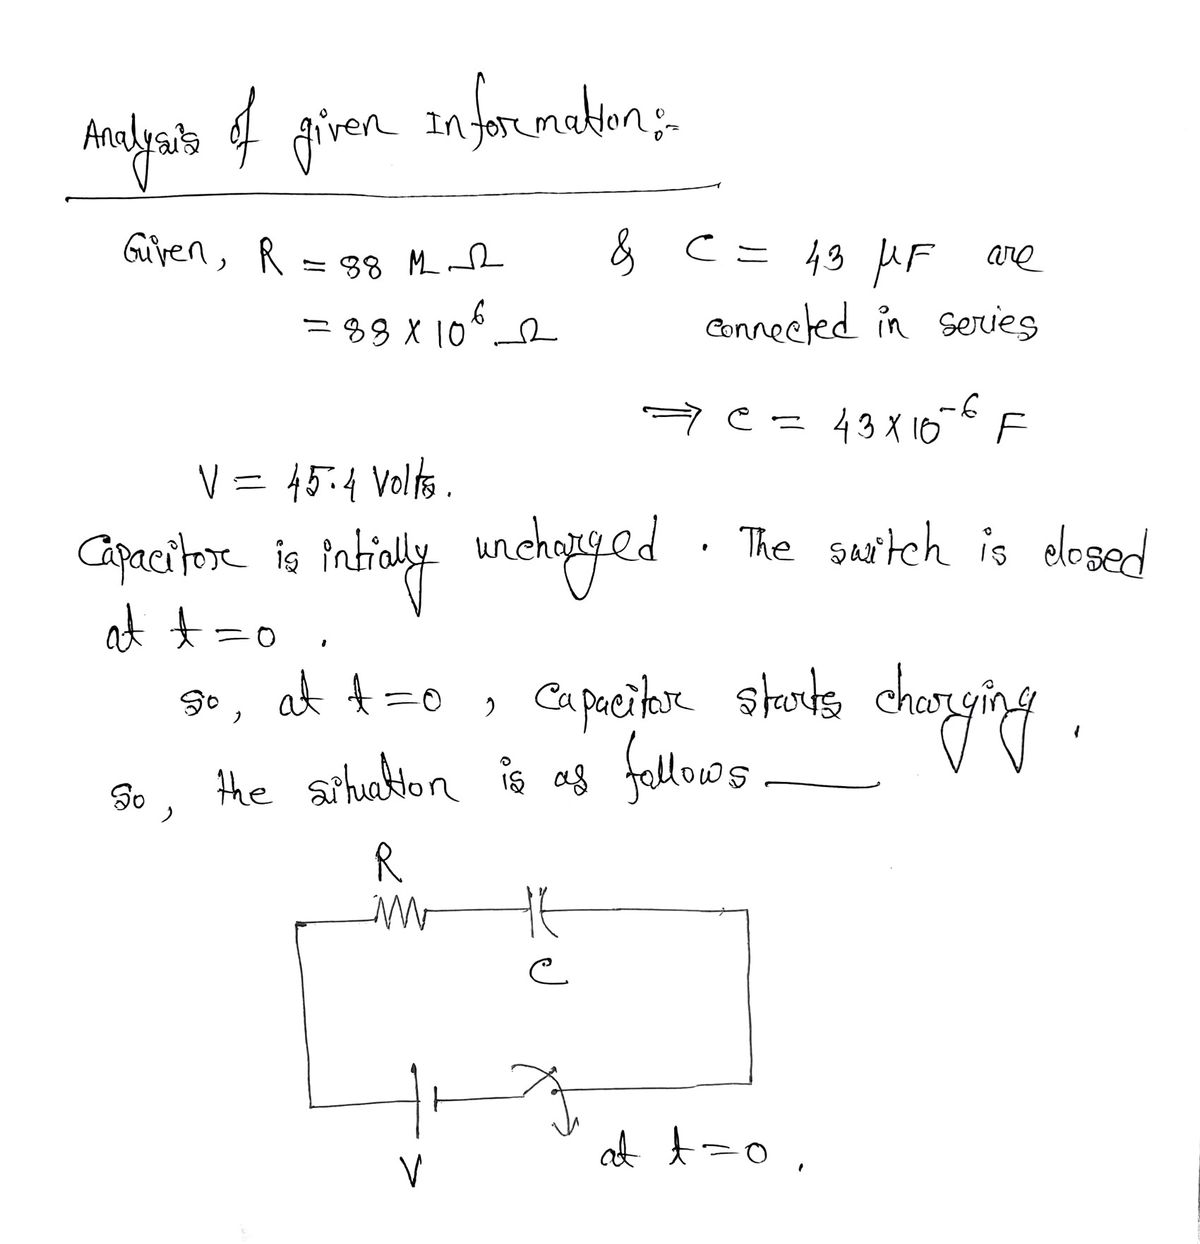 Analysis of given Information:-
Given, R = 88 M Ω & C = 43 μF are
= 88 x 10⁶ Ω connected in series
⇒ C = 43 x 10⁻⁶ F
V = 45.4 Volts.
Capacitor is intially uncharged. The switch is closed
at t = 0.
So, at t = 0, Capacitor starts charging.
So, the situation is as follows —
R
C
V
at t = 0.